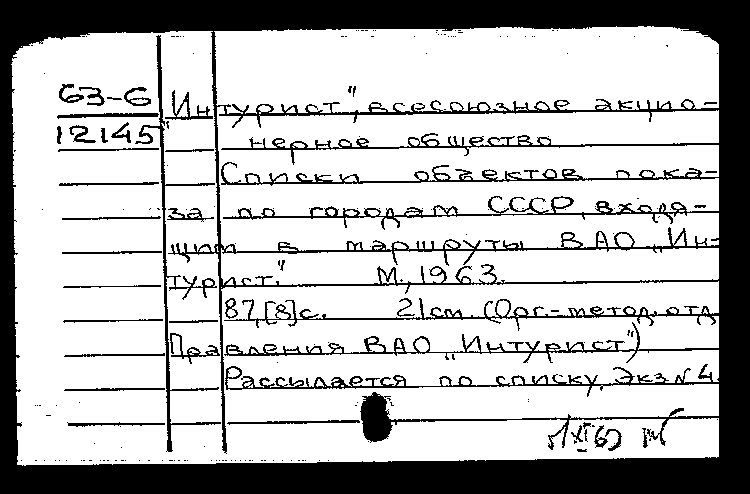 63-6
12145
„Интурист", всесоюзное акцио-
нерное общество
Списки объектов пока-
за по городам СССР, входя-
щим в маршруты ВАО „Ин-
турист."   М., 1963.
87,[8]с.   21см. (Орг.-метод. отд.
Правления ВАО „Интурист")
Рассылается по списку. Экз № 4.